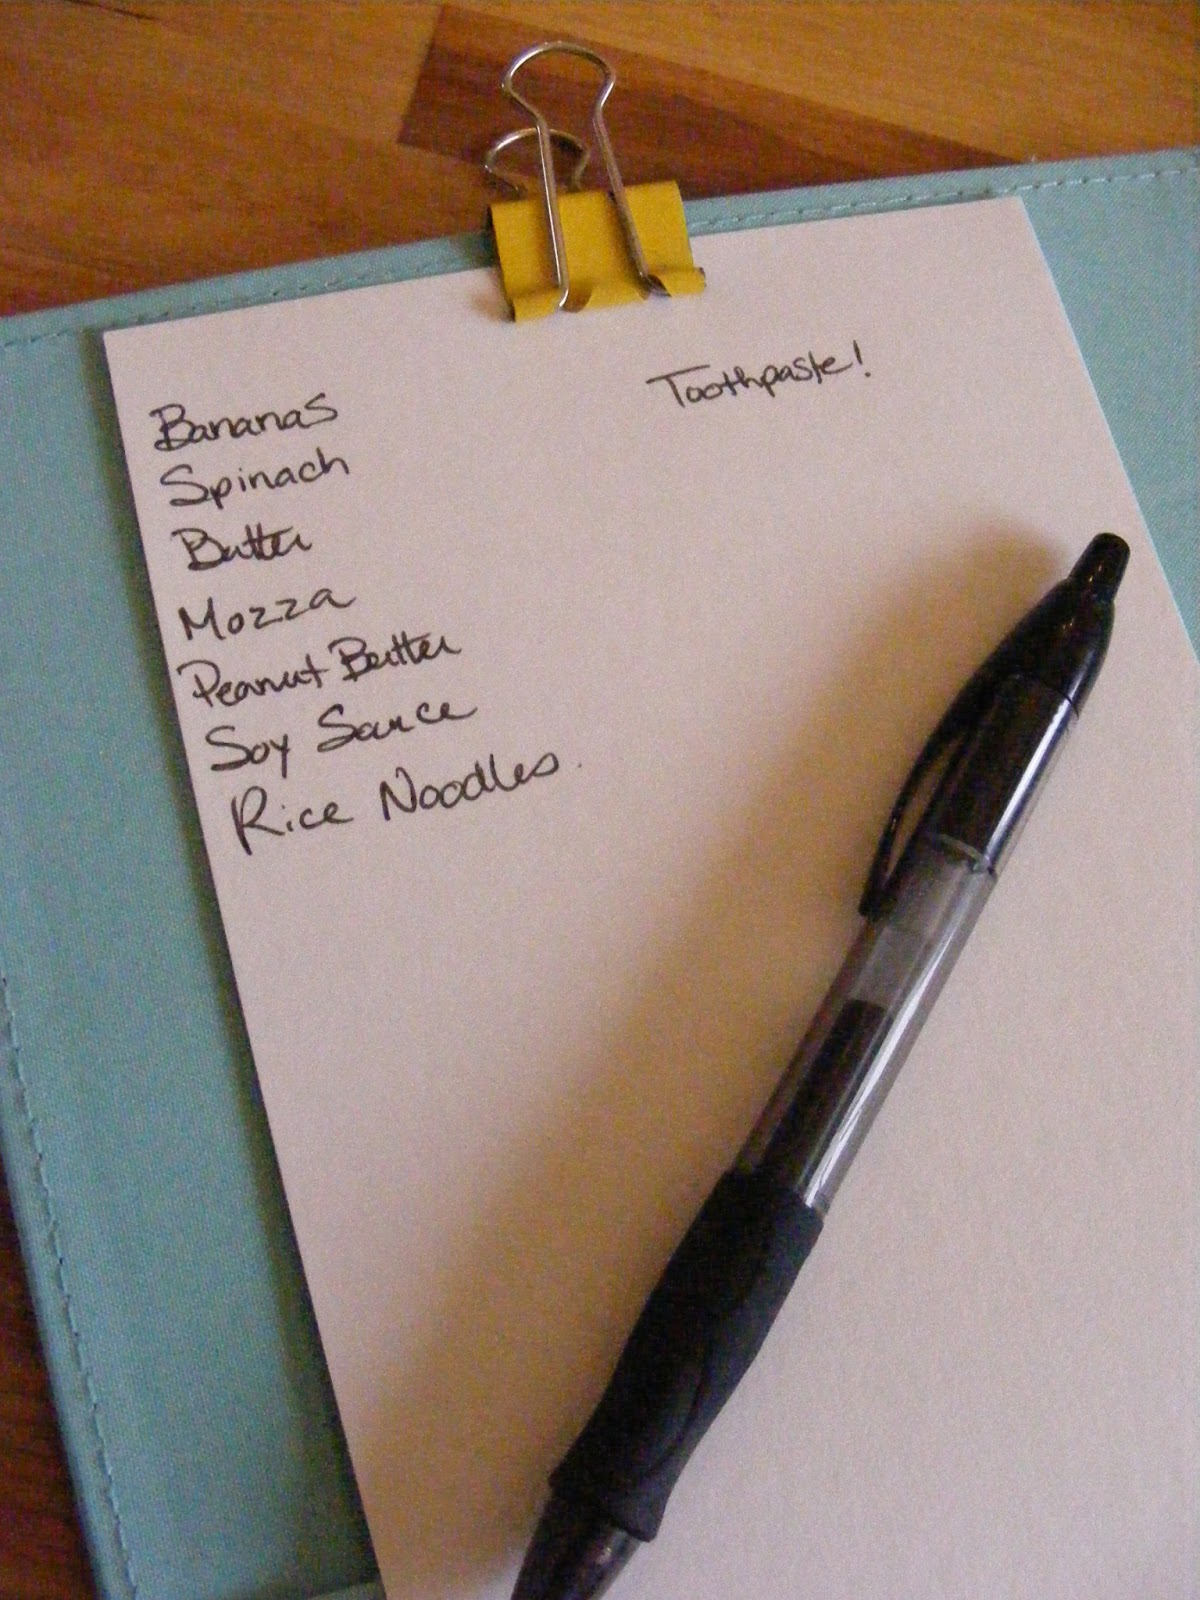 Bananas
Spinach
Butter
Mozza
Peanut Butter
Soy Sauce
Rice Noodles.
Toothpaste!